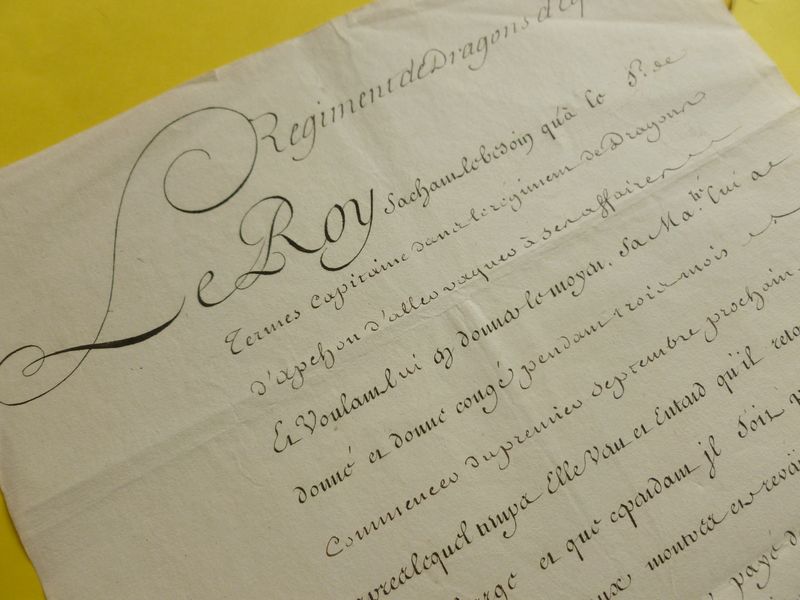 Regiment de Dragons d'
Le Roy Sachant le besoin qu'à le Sr. de
Termes Capitaine dans le régiment de Dragons
d'apchon d'aller vaquer à ses affaires
Et Voulant lui en donner le moyen. Sa Maté. lui ac
donné et donne congé pendant trois mois
Commencer du premier Septembre prochain
apres lequel temps Elle Veut et Entend qu'il
et que cependant jl Soit
montres et
payé